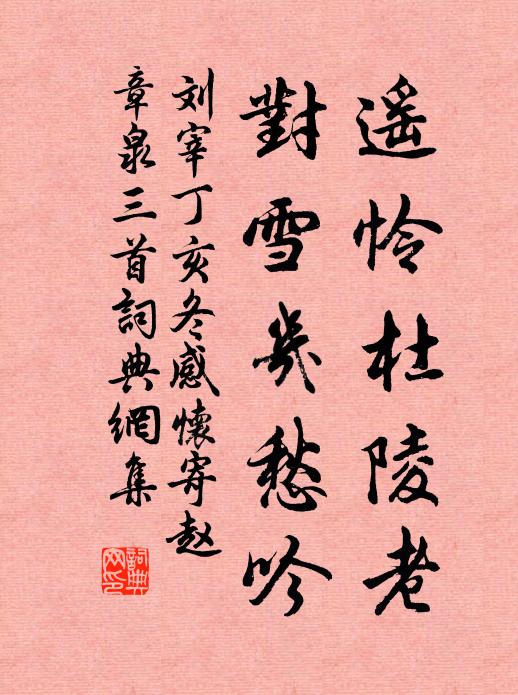 遥怜杜陵老
對雪幾愁吟
刘宰丁亥冬感懷寄赵
章泉三首詞典網集
詞典网印